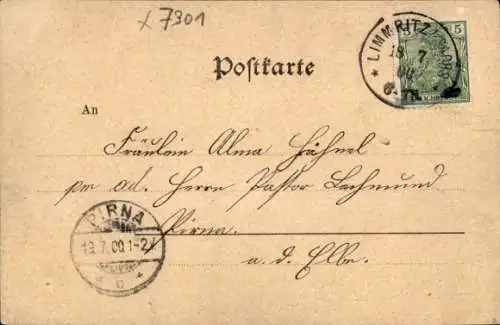 x 7301
LIMMRITZ
5
18 7
00
6-7N.
Postkarte
An
Fräulein Alma Hähnel
pr ad. Herrn Pastor Lechmund
Pirna
a. d. Elbe.
PIRNA
18.7.00.1-2